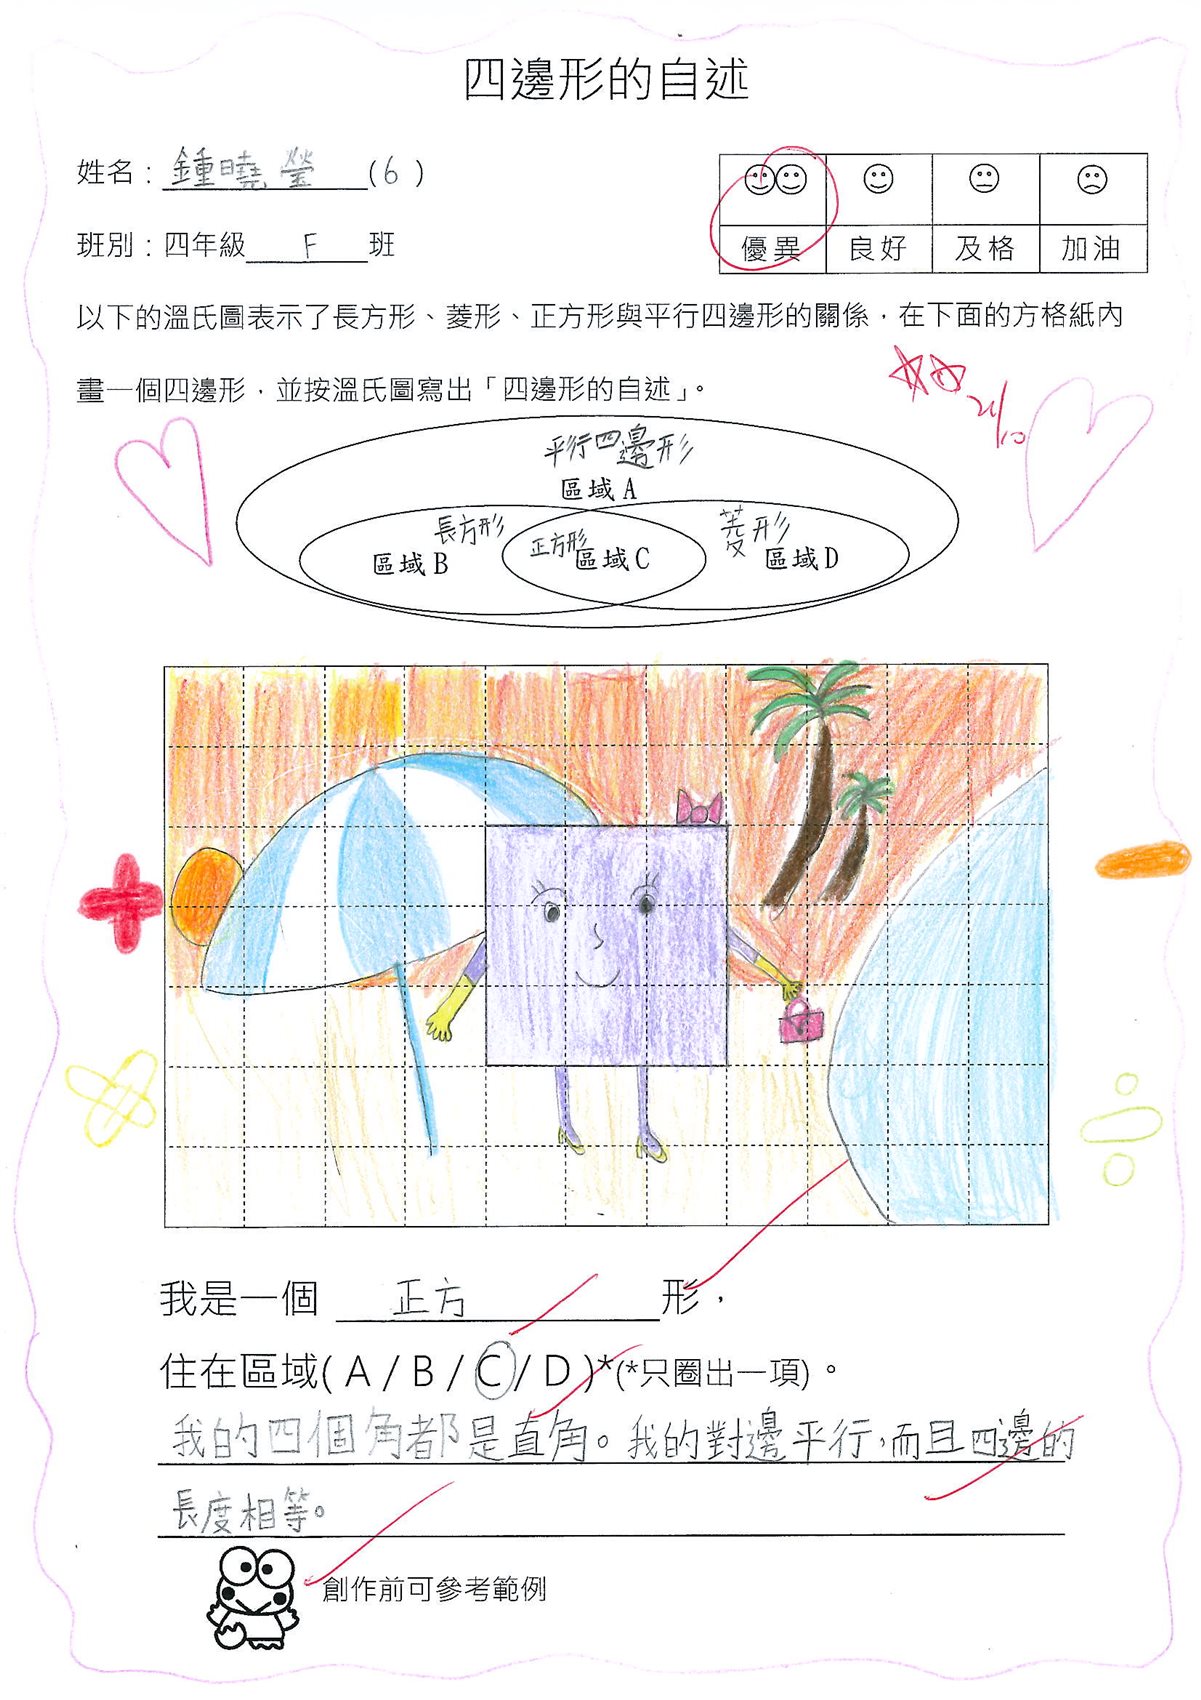 四邊形的自述
姓名：鍾曉瑩(6)
班別：四年級 F 班
優異 良好 及格 加油
以下的溫氏圖表示了長方形、菱形、正方形與平行四邊形的關係，在下面的方格紙內
畫一個四邊形，並按溫氏圖寫出「四邊形的自述」。
21/10
平行四邊形
區域 A
長方形 正方形 菱形
區域 B 區域 C 區域 D
我是一個 正方 形，
住在區域( A / B / C / D )*(*只圈出一項)。
我的四個角都是直角。我的對邊平行，而且四邊的
長度相等。
創作前可參考範例